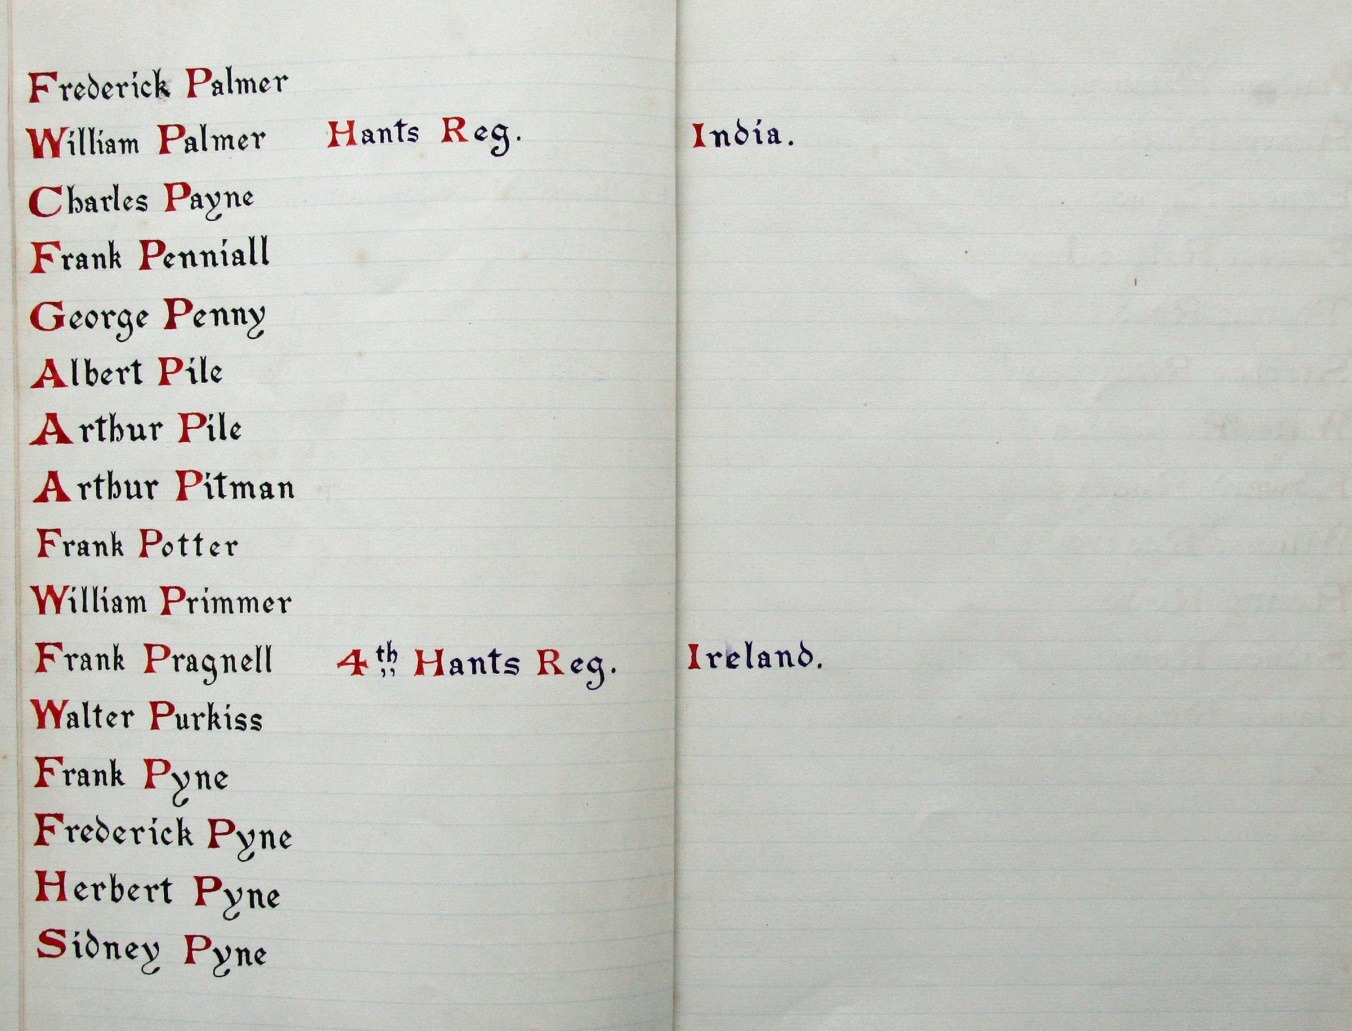 Frederick Palmer
William Palmer Hants Reg. India.
Charles Payne
Frank Penniall
George Penny
Albert Pile
Arthur Pile
Arthur Pitman
Frank Potter
William Primmer
Frank Pragnell 4th Hants Reg. Ireland.
Walter Purkiss
Frank Pyne
Frederick Pyne
Herbert Pyne
Sidney Pyne